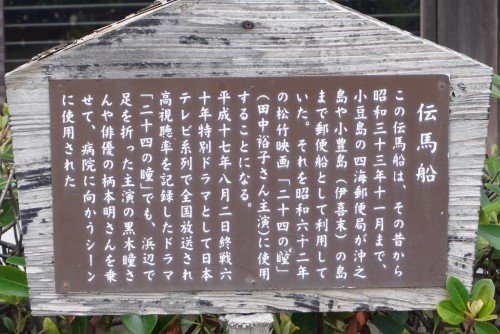 伝馬船
この伝馬船は、その昔から
昭和三十三年十一月まで、
小豆島の四海郵便局が沖之
島や小豊島（伊喜末）の島
まで郵便船として利用して
いた。それを昭和六十二年
の松竹映画「二十四の瞳」
（田中裕子さん主演）に使用
することになる。
平成十七年八月二日終戦六
十年特別ドラマとして日本
テレビ系列で全国放送され
高視聴率を記録したドラマ
「二十四の瞳」でも、浜辺で
足を折った主演の黒木瞳さ
んや俳優の柄本明さんを乗
せて、病院に向かうシーン
に使用された